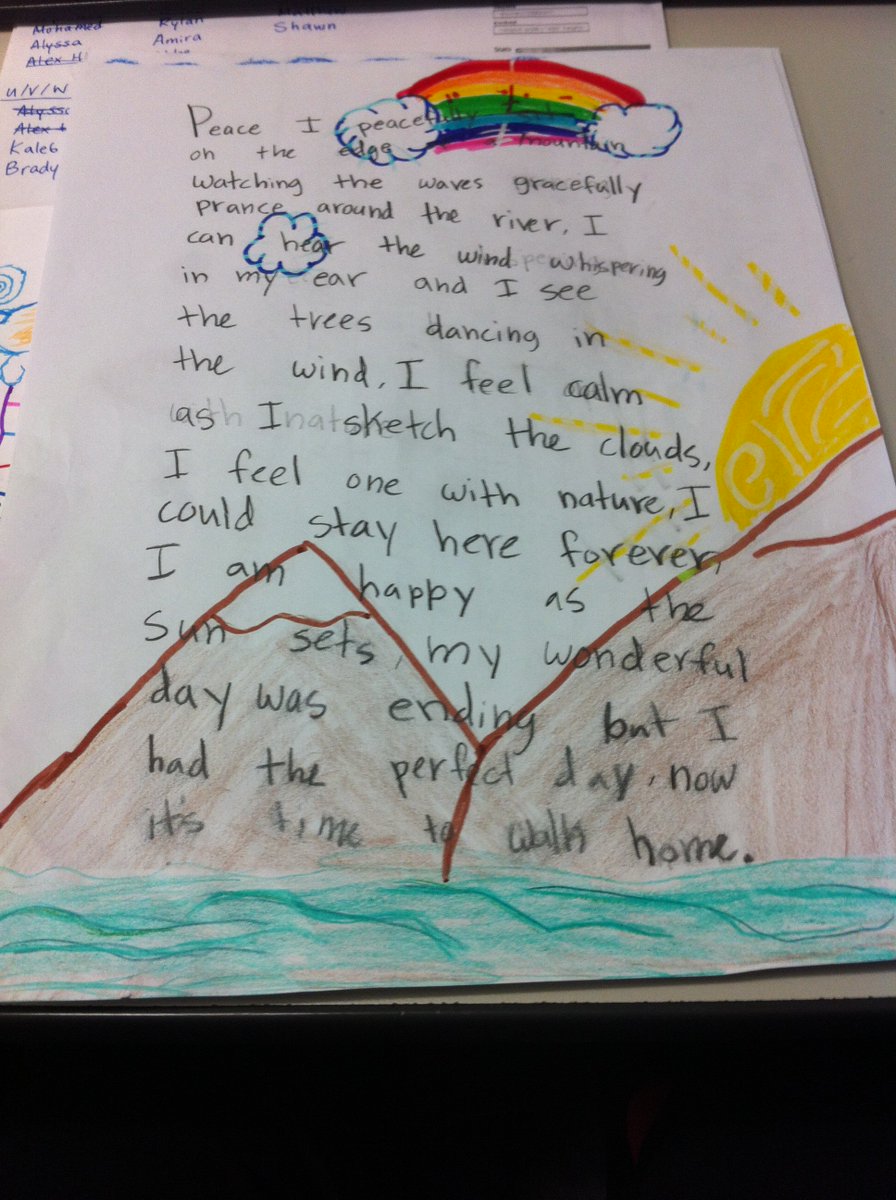 Mohamed
Alyssa
Alex H
U/V/W
Alyssa
Alex H
Kaleb
Brady
Kylan
Amira
Shawn
Peace I peacefully sit
on the edge a mountain
watching the waves gracefully
prance around the river. I
can hear the wind whispering
in my ear and I see
the trees dancing in
the wind. I feel calm
as I sketch the clouds,
I feel one with nature, I
could stay here forever,
I am happy as the
sun sets, my wonderful
day was ending but I
had the perfect day, now
it's time to walk home.